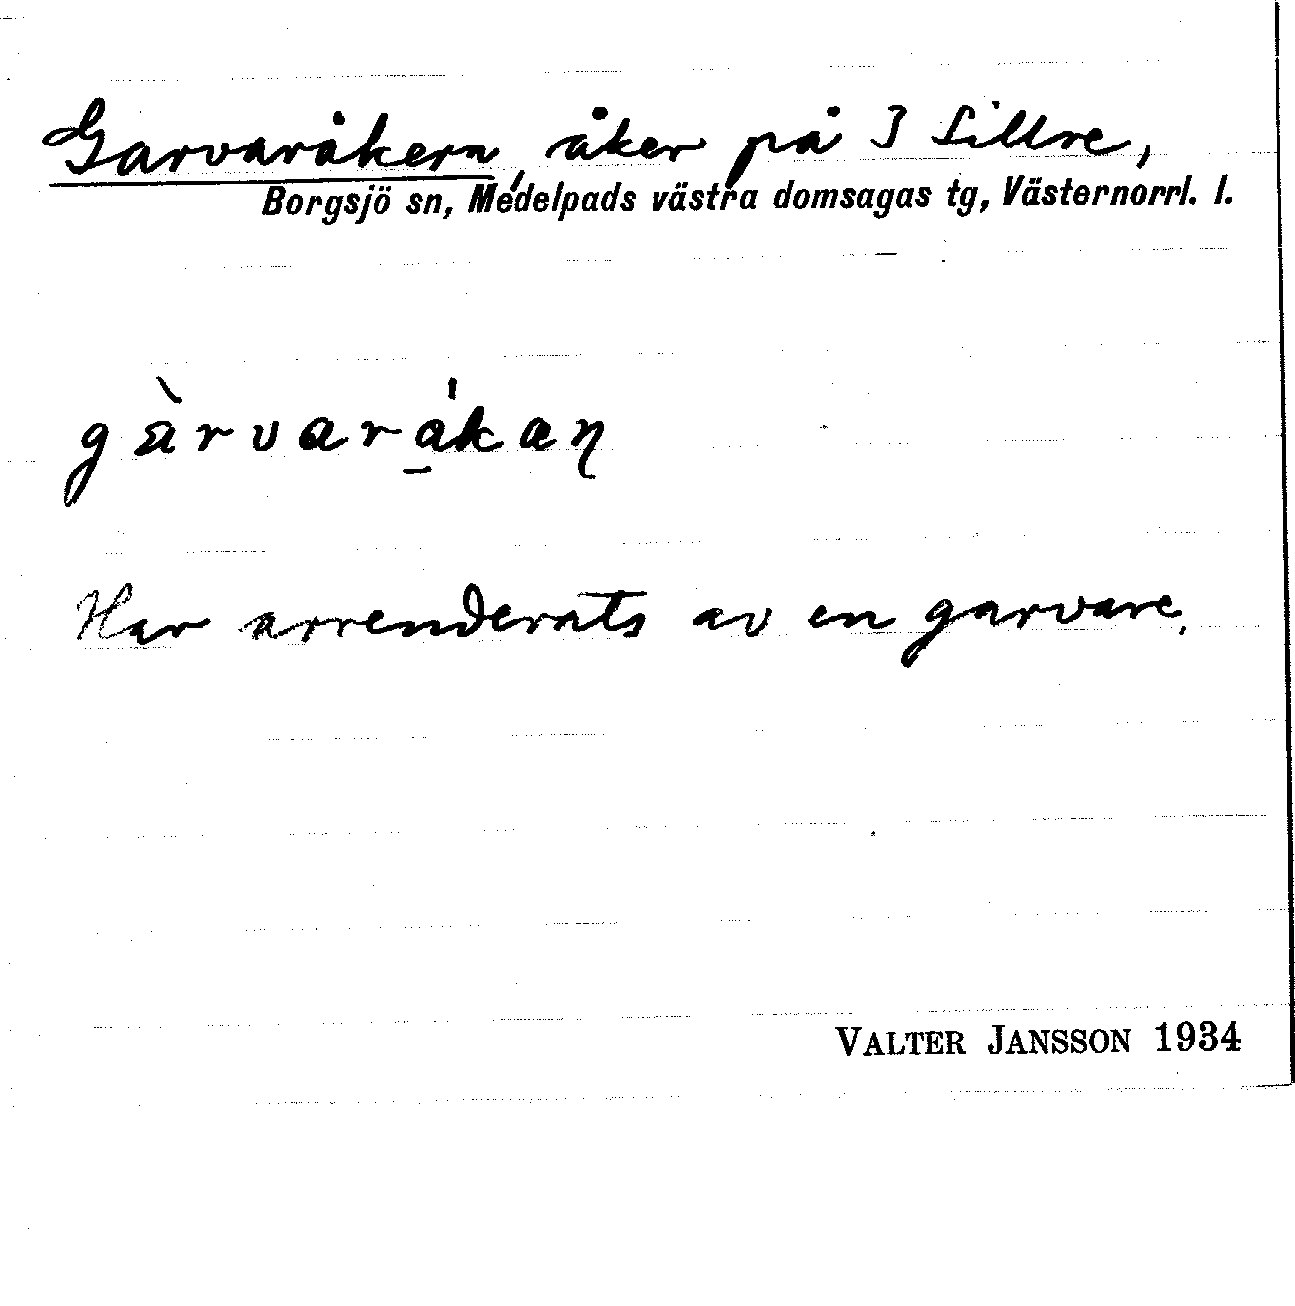 Garvaråkern, åker på 3 Lillre,
Borgsjö sn, Medelpads västra domsagas tg, Västernorrl. l.
gàrvarákaɳ
Har arrenderats av en garvare.
VALTER JANSSON 1934